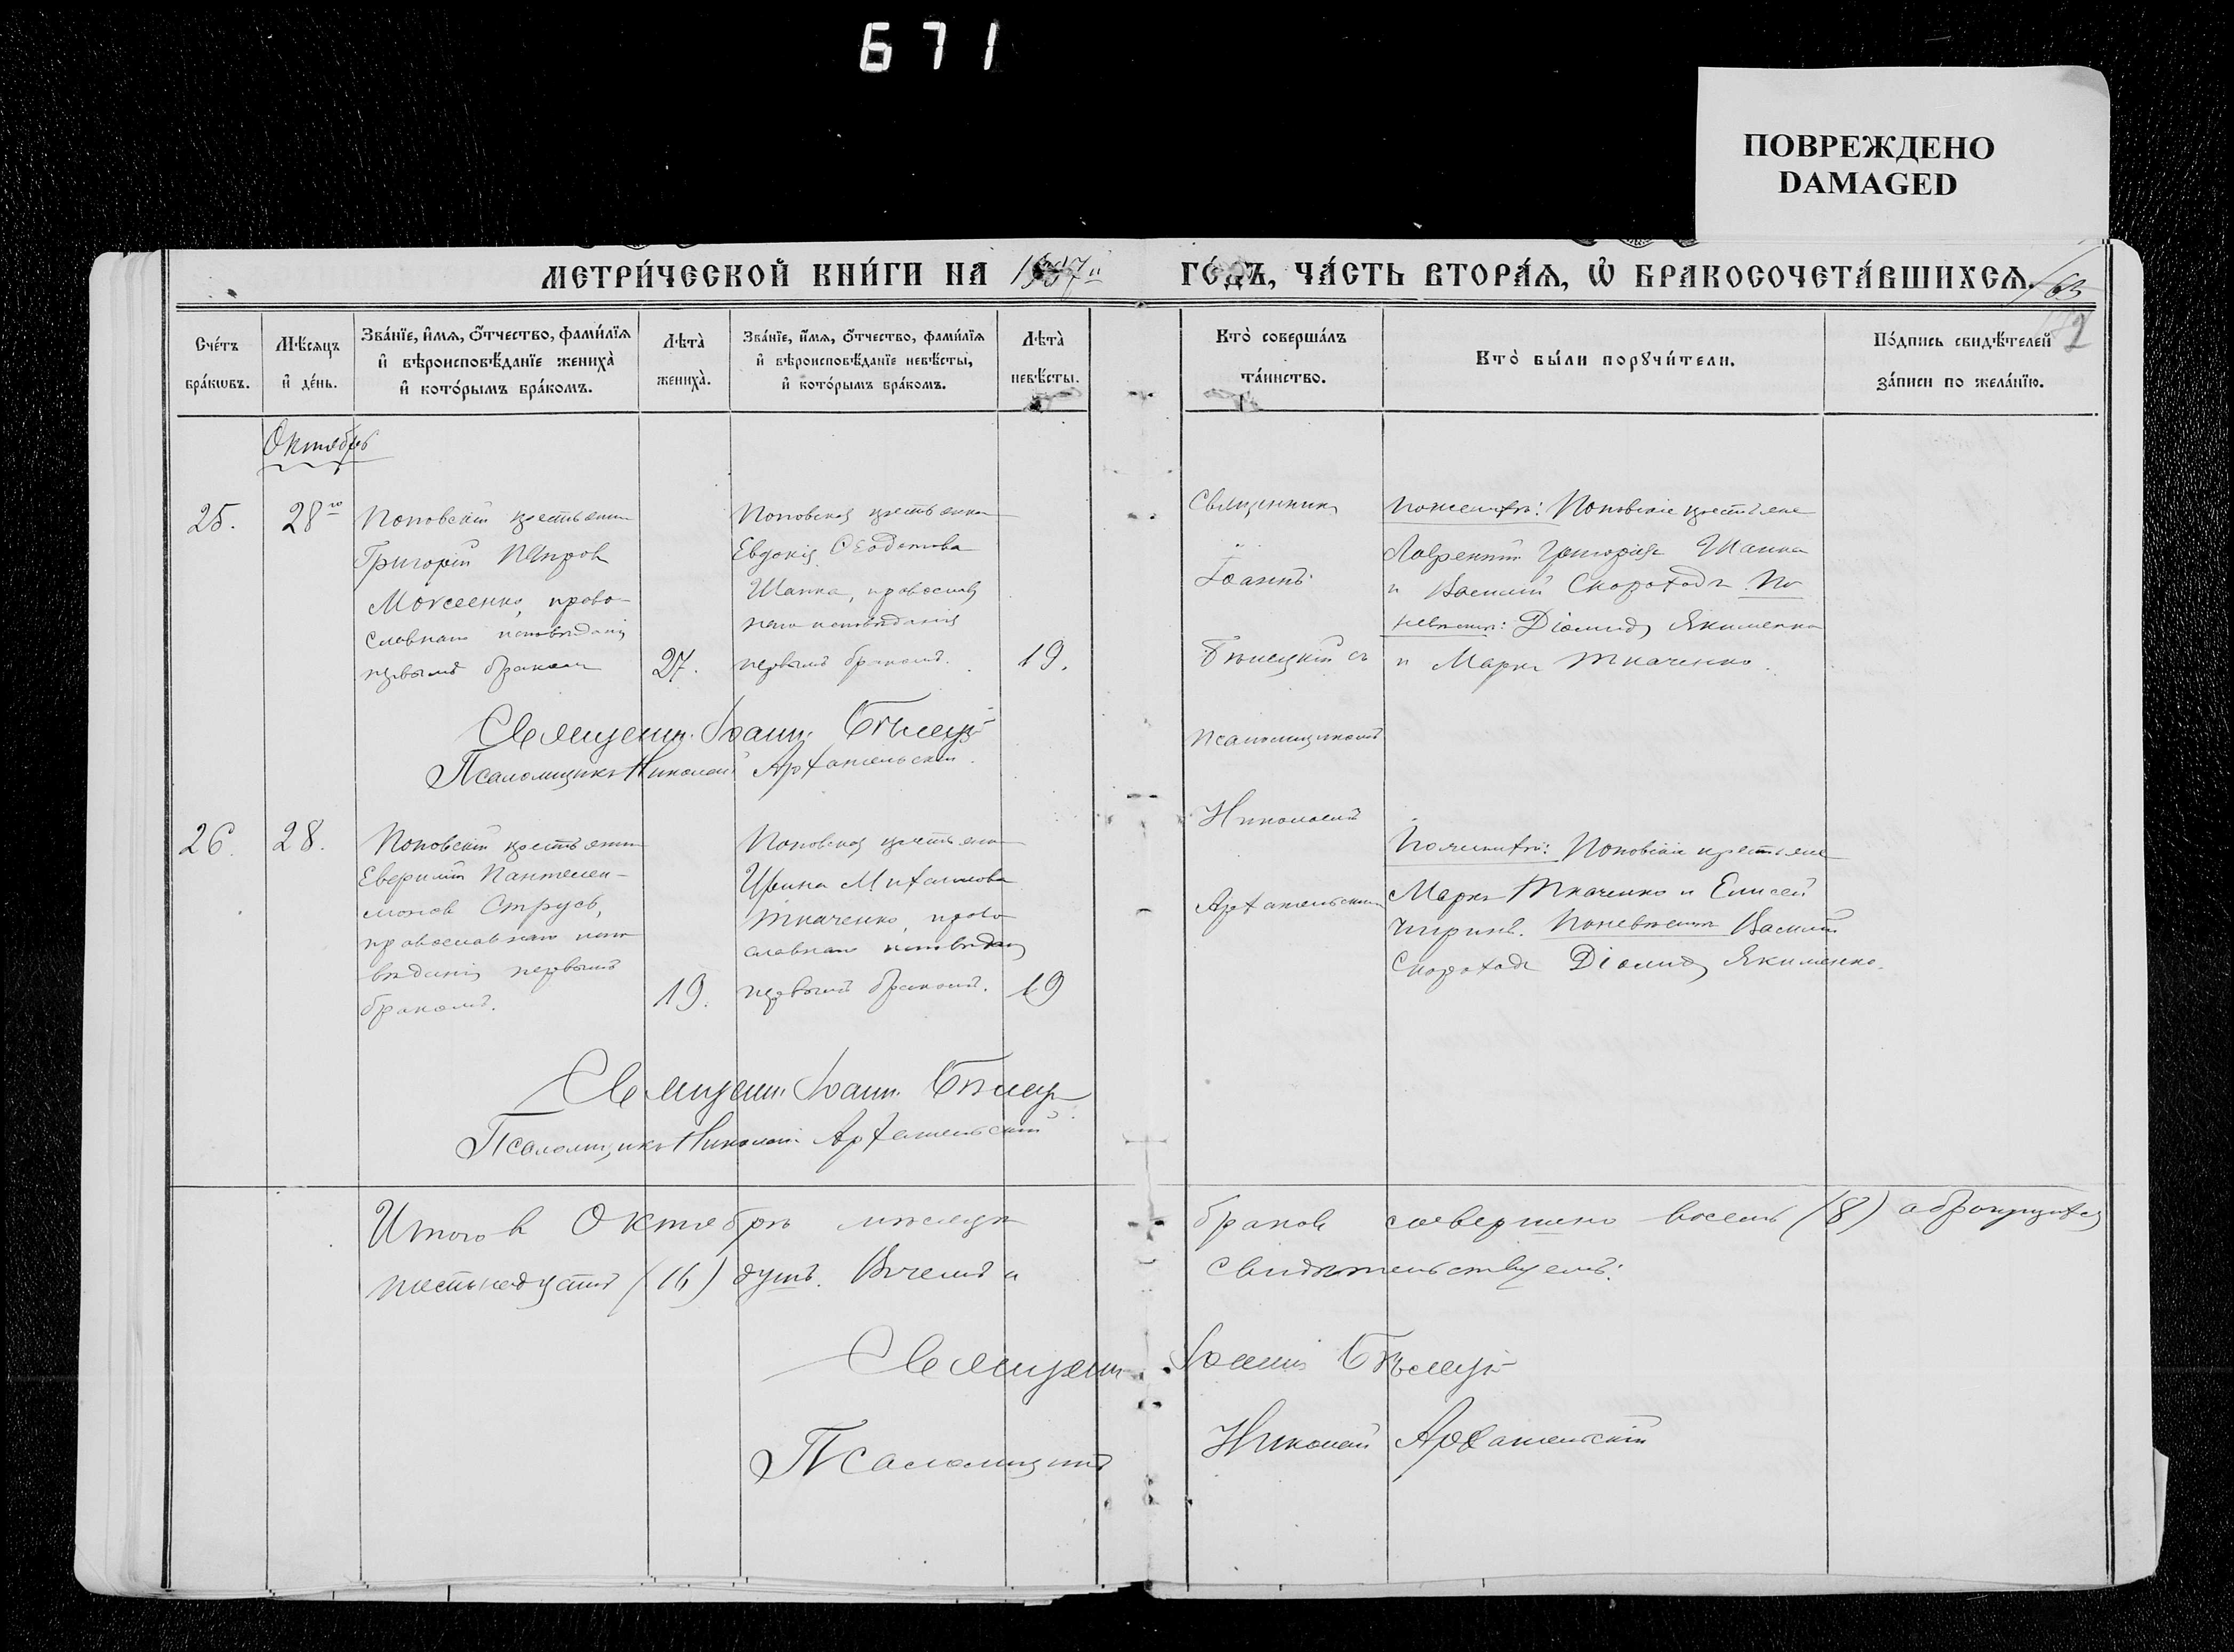 671
ПОВРЕЖДЕНО
DAMAGED
МЕТРИ́ЧЕСКОЙ КНИ́ГИ НА ГО́ДЪ, ЧА́СТЬ ВТОРА́Я, Ѡ БРАКОСОЧЕТА́ВШИХСЯ.
Сче́тъ бра́кѡвъ.
Мѣ́сяцъ и де́нь.
Зва́нїе, и́мя, о́тчество, фами́лїя
и вѣроисповѣ́данїе жениха̀
и кото́рымъ бра́комъ.
Лѣта̀ жениха̀.
Зва́нїе, и́мя, о́тчество, фами́лїя
и вѣроисповѣ́данїе невѣ́сты,
и кото́рымъ бра́комъ.
Лѣта̀ невѣ́сты.
Кто̀ соверша́лъ та́инство.
Кто̀ бы́ли порꙋчи́тели.
По́дпись свидѣ́телей за́писи по жела́нїю.
Октябрь
25.
28го
Поповскій крестьянин
Григорій Петров
Моисеенко, право-
славнаго исповѣданія
первымъ браком
27.
Поповская крестьянка
Евдокія Феодотова
Шапка, православ
наго исповѣданія
первымъ бракомъ.
19.
Священник
Іоаннъ
Бѣлецкій съ
псаломщикомъ
Николаемъ
Архангельским
По женихѣ: Поповскіе крестьяне
Лаврентій Григоріев Шапка
и Василій Скороход По
невѣстѣ: Діомид Якименко
и Марк Ткаченко.
Священ. Іоанн. Бѣлец
Псаломщикъ Николай Архангельскій.
26.
28.
Поповскій крестьянин
Пантелей-
монов Струсь,
православнаго испо
вѣданія первымъ
бракомъ.
19.
Поповская крестьянка
Ирина Михаилова
Ткаченко, право
славнаго исповѣдан
первымъ бракомъ.
19
По женихѣ: Поповскіе крестьяне
Марк Ткаченко и Елисей
По невѣстѣ Василій
Скороход Діомид Якименко.
Священ. Іоанн. Бѣлец
Псаломщикъ Николай Архангельскій
Итого в Октябрѣ мѣсяцѣ браков совершено восемь (8)
шестьнадцать (16) душъ. В чемъ и свидѣтельствуемъ:
Священ Іоаннъ Бѣлец
Псаломщикъ Николай Архангельскій